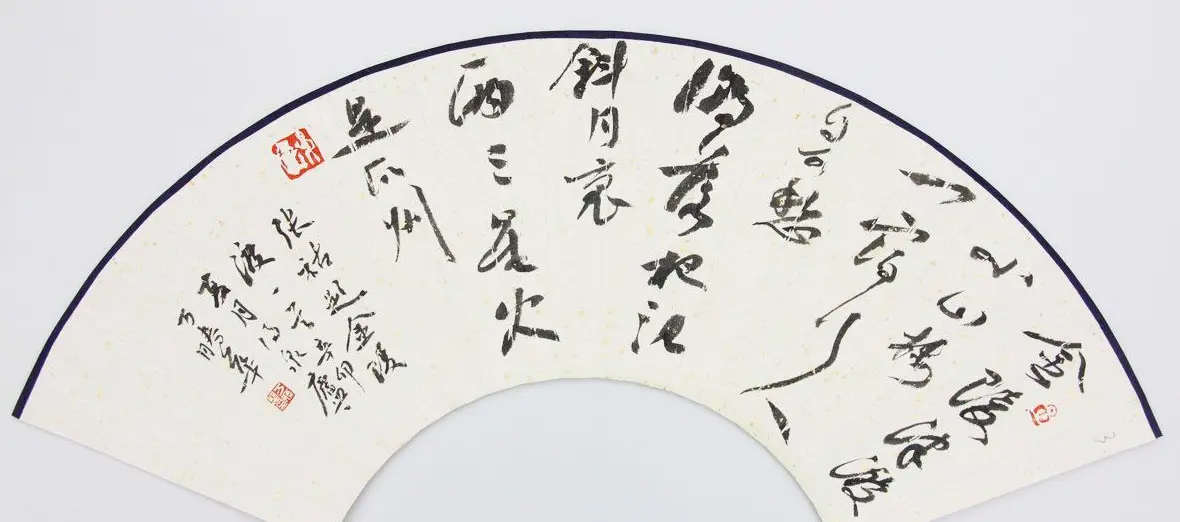 金陵津渡
小山楼
一宿行人
自可愁
潮落夜江
斜月里
两三星火
是瓜州
张祜题金陵
渡一首辛卯
五月